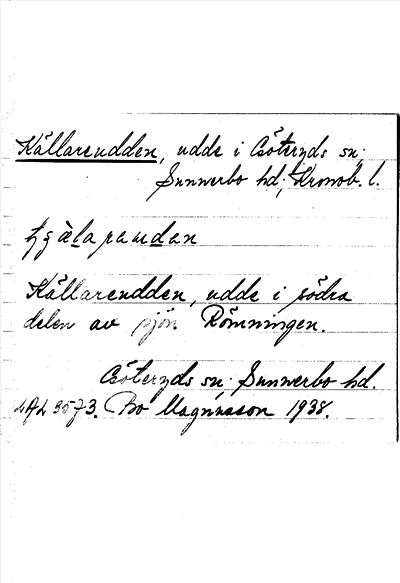 Källareudden, udde i Göteryds sn;
Sunnerbo hd; Kronob. l.
Källareudden, udde i södra
delen av sjön Römningen.
Göteryds sn; Sunnerbo hd.
3573. Bo Magnusson 1938.